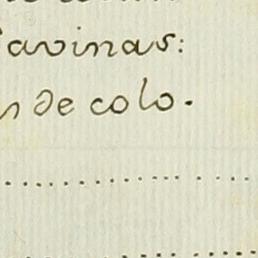 avinas:
n de colo.